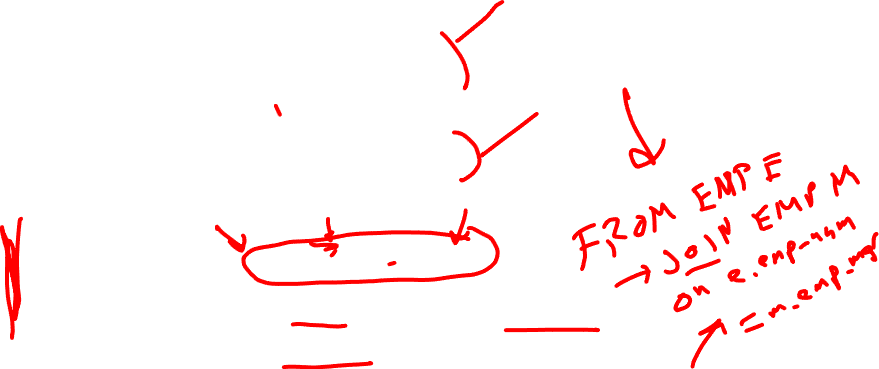 FROM EMP E
JOIN EMP M
on e.emp_num
= m.emp_mgr